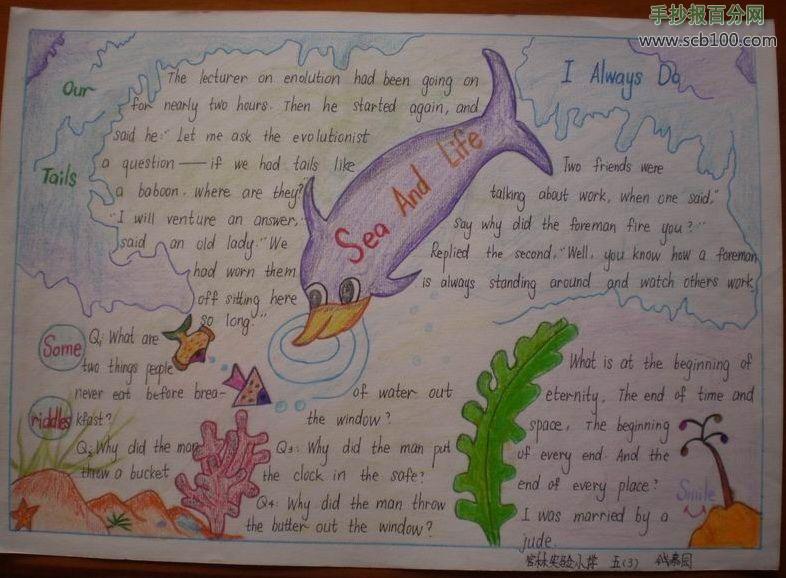 手抄报百分网
www.scb100.com
Our
Tails
The lecturer on enolution had been going on
for nearly two hours. Then he started again, and
said he:" Let me ask the evolutionist
a question — if we had tails like
a baboon. where are they?"
"I will venture an answer,"
said an old lady." We
had worn them
off sitting here
so long."
Sea And Life
I Always Do
Two friends were
talking about work, when one said,"
say why did the foreman fire you?"
Replied the second,"Well, you know how a foreman
is always standing around and watch others work.
Some
riddles
Q1: What are
two things people
never eat before brea-
kfast?
Q2: Why did the man
throw a bucket
of water out
the window?
Q3: Why did the man put
the clock in the safe?
Q4: Why did the man throw
the butter out the window?
What is at the beginning of
eternity, The end of time and
space, The beginning
of every end. And the
end of every place?
I was married by a
jude.
Smile
实验小学 五(3)